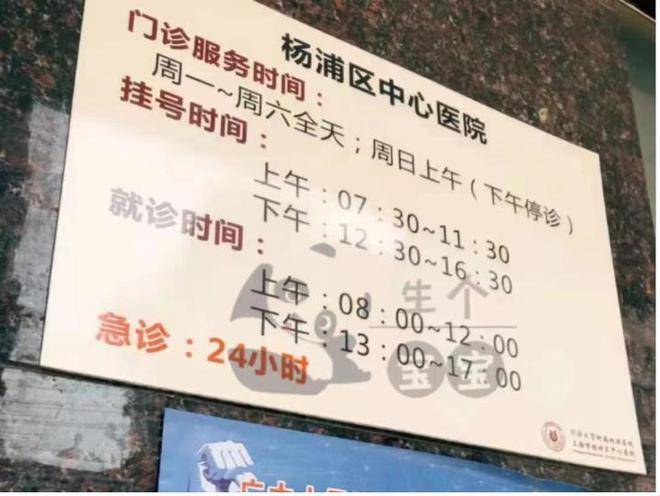 杨浦区中心医院
门诊服务时间：
周一~周六全天；周日上午（下午停诊）
挂号时间：
上午：07：30~11：30
下午：12：30~16：30
就诊时间：
上午：08：00~12：00
下午：13：00~17：00
急诊：24小时
生个
宝宝